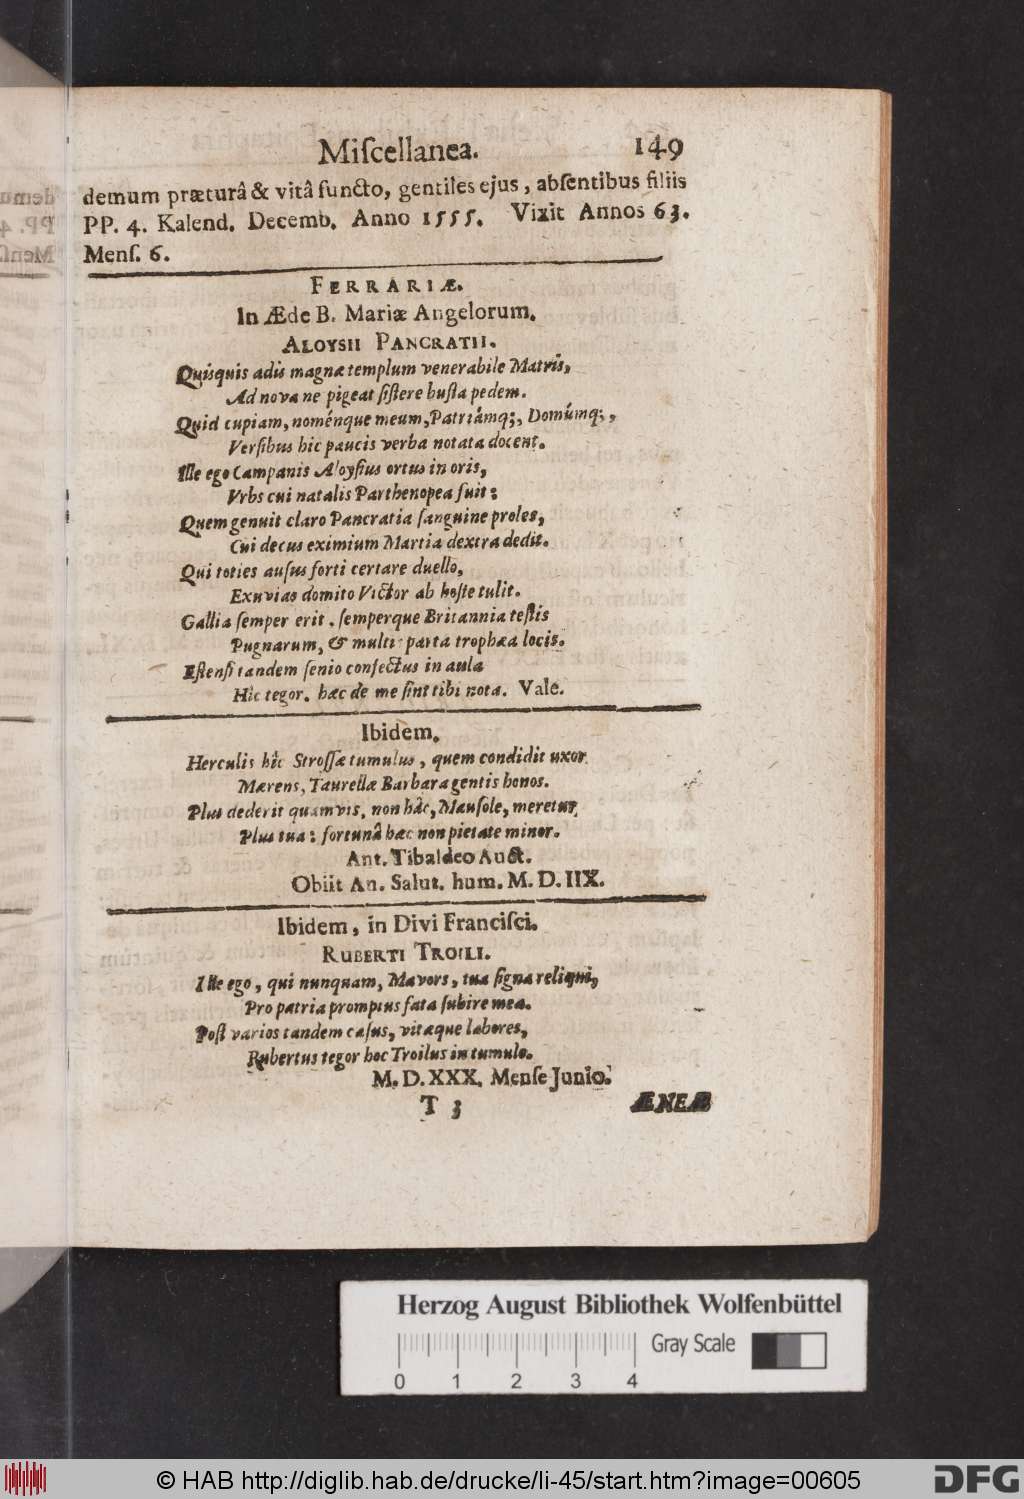 Miſcellanea. 149
demum præturâ & vitâ functo, gentiles ejus, abſentibus filiis
PP. 4. Kalend. Decemb. Anno 1555. Vixit Annos 63.
Menſ. 6.
FERRARIÆ.
In Æde B. Mariæ Angelorum.
ALOYSII PANCRATII.
Quiſquis adis magnæ templum venerabile Matris,
Ad nova ne pigeat ſiſtere buſta pedem.
Quid cupiam, noménque meum, Patriámq;, Domúmq;,
Verſibus hic paucis verba notata docent.
Ille ego Campanis Aloyſius ortus in oris,
Vrbs cui natalis Parthenopea fuit:
Quem genuit claro Pancratia ſanguine proles,
Cui decus eximium Martia dextra dedit.
Qui toties auſus forti certare duello,
Exuvias domito Victor ab hoſte tulit.
Gallia ſemper erit, ſemperque Britannia teſtis
Pugnarum, & multis parta trophæa locis.
Eſtenſi tandem ſenio confectus in aula
Hic tegor. hæc de me ſint tibi nota. Vale.
Ibidem.
Herculis hîc Stroſſæ tumulus, quem condidit uxor
Mærens, Taurellæ Barbara gentis honos.
Plus dederit quamvis, non hâc, Mauſole, meretur,
Plus tua: fortunâ hæc non pietate minor.
Ant. Tibaldeo Auct.
Obiit An. Salut. hum. M. D. IIX.
Ibidem, in Divi Franciſci.
RUBERTI TROILI.
Ille ego, qui nunquam, Mavors, tua ſigna reliqui,
Pro patria promptus fata ſubire mea.
Poſt varios tandem caſus, vitæque labores,
Rubertus tegor hoc Troilus in tumulo.
M. D. XXX. Menſe Junio.
T 3 ÆNEÆ
Herzog August Bibliothek Wolfenbüttel
Gray Scale
0 1 2 3 4
© HAB http://diglib.hab.de/drucke/li-45/start.htm?image=00605
DFG